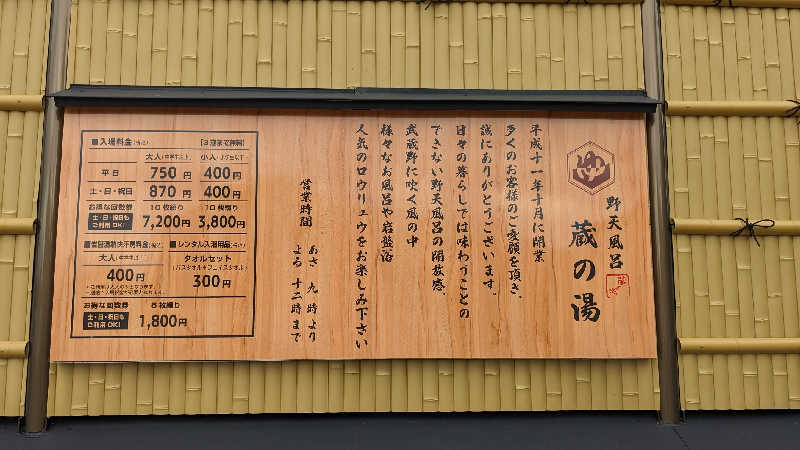 ゆ
野天風呂
蔵の湯
平成十一年十月に開業
多くのお客様のご愛顧を頂き、
誠にありがとうございます。
日々の暮らしでは味わうことの
できない野天風呂の開放感。
武蔵野に吹く風の中
様々なお風呂や岩盤浴
人気のロウリュウをお楽しみ下さい
営業時間
あさ 九時より
よる 十二時まで
■入場料金(税込)
大人(中学生以上)
小人
平日 750円 400円
土・日・祝日 870円 400円
お得な回数券 10枚綴り 10枚綴り
土・日・祝日も
ご利用OK!
7,200円 3,800円
■レンタル入浴用品(税込)
大人(中学生以上)
400円
タオルセット
(バスタオル+フェイスタオル)
300円
お得な回数券 5枚綴り
土・日・祝日も
ご利用OK!
1,800円